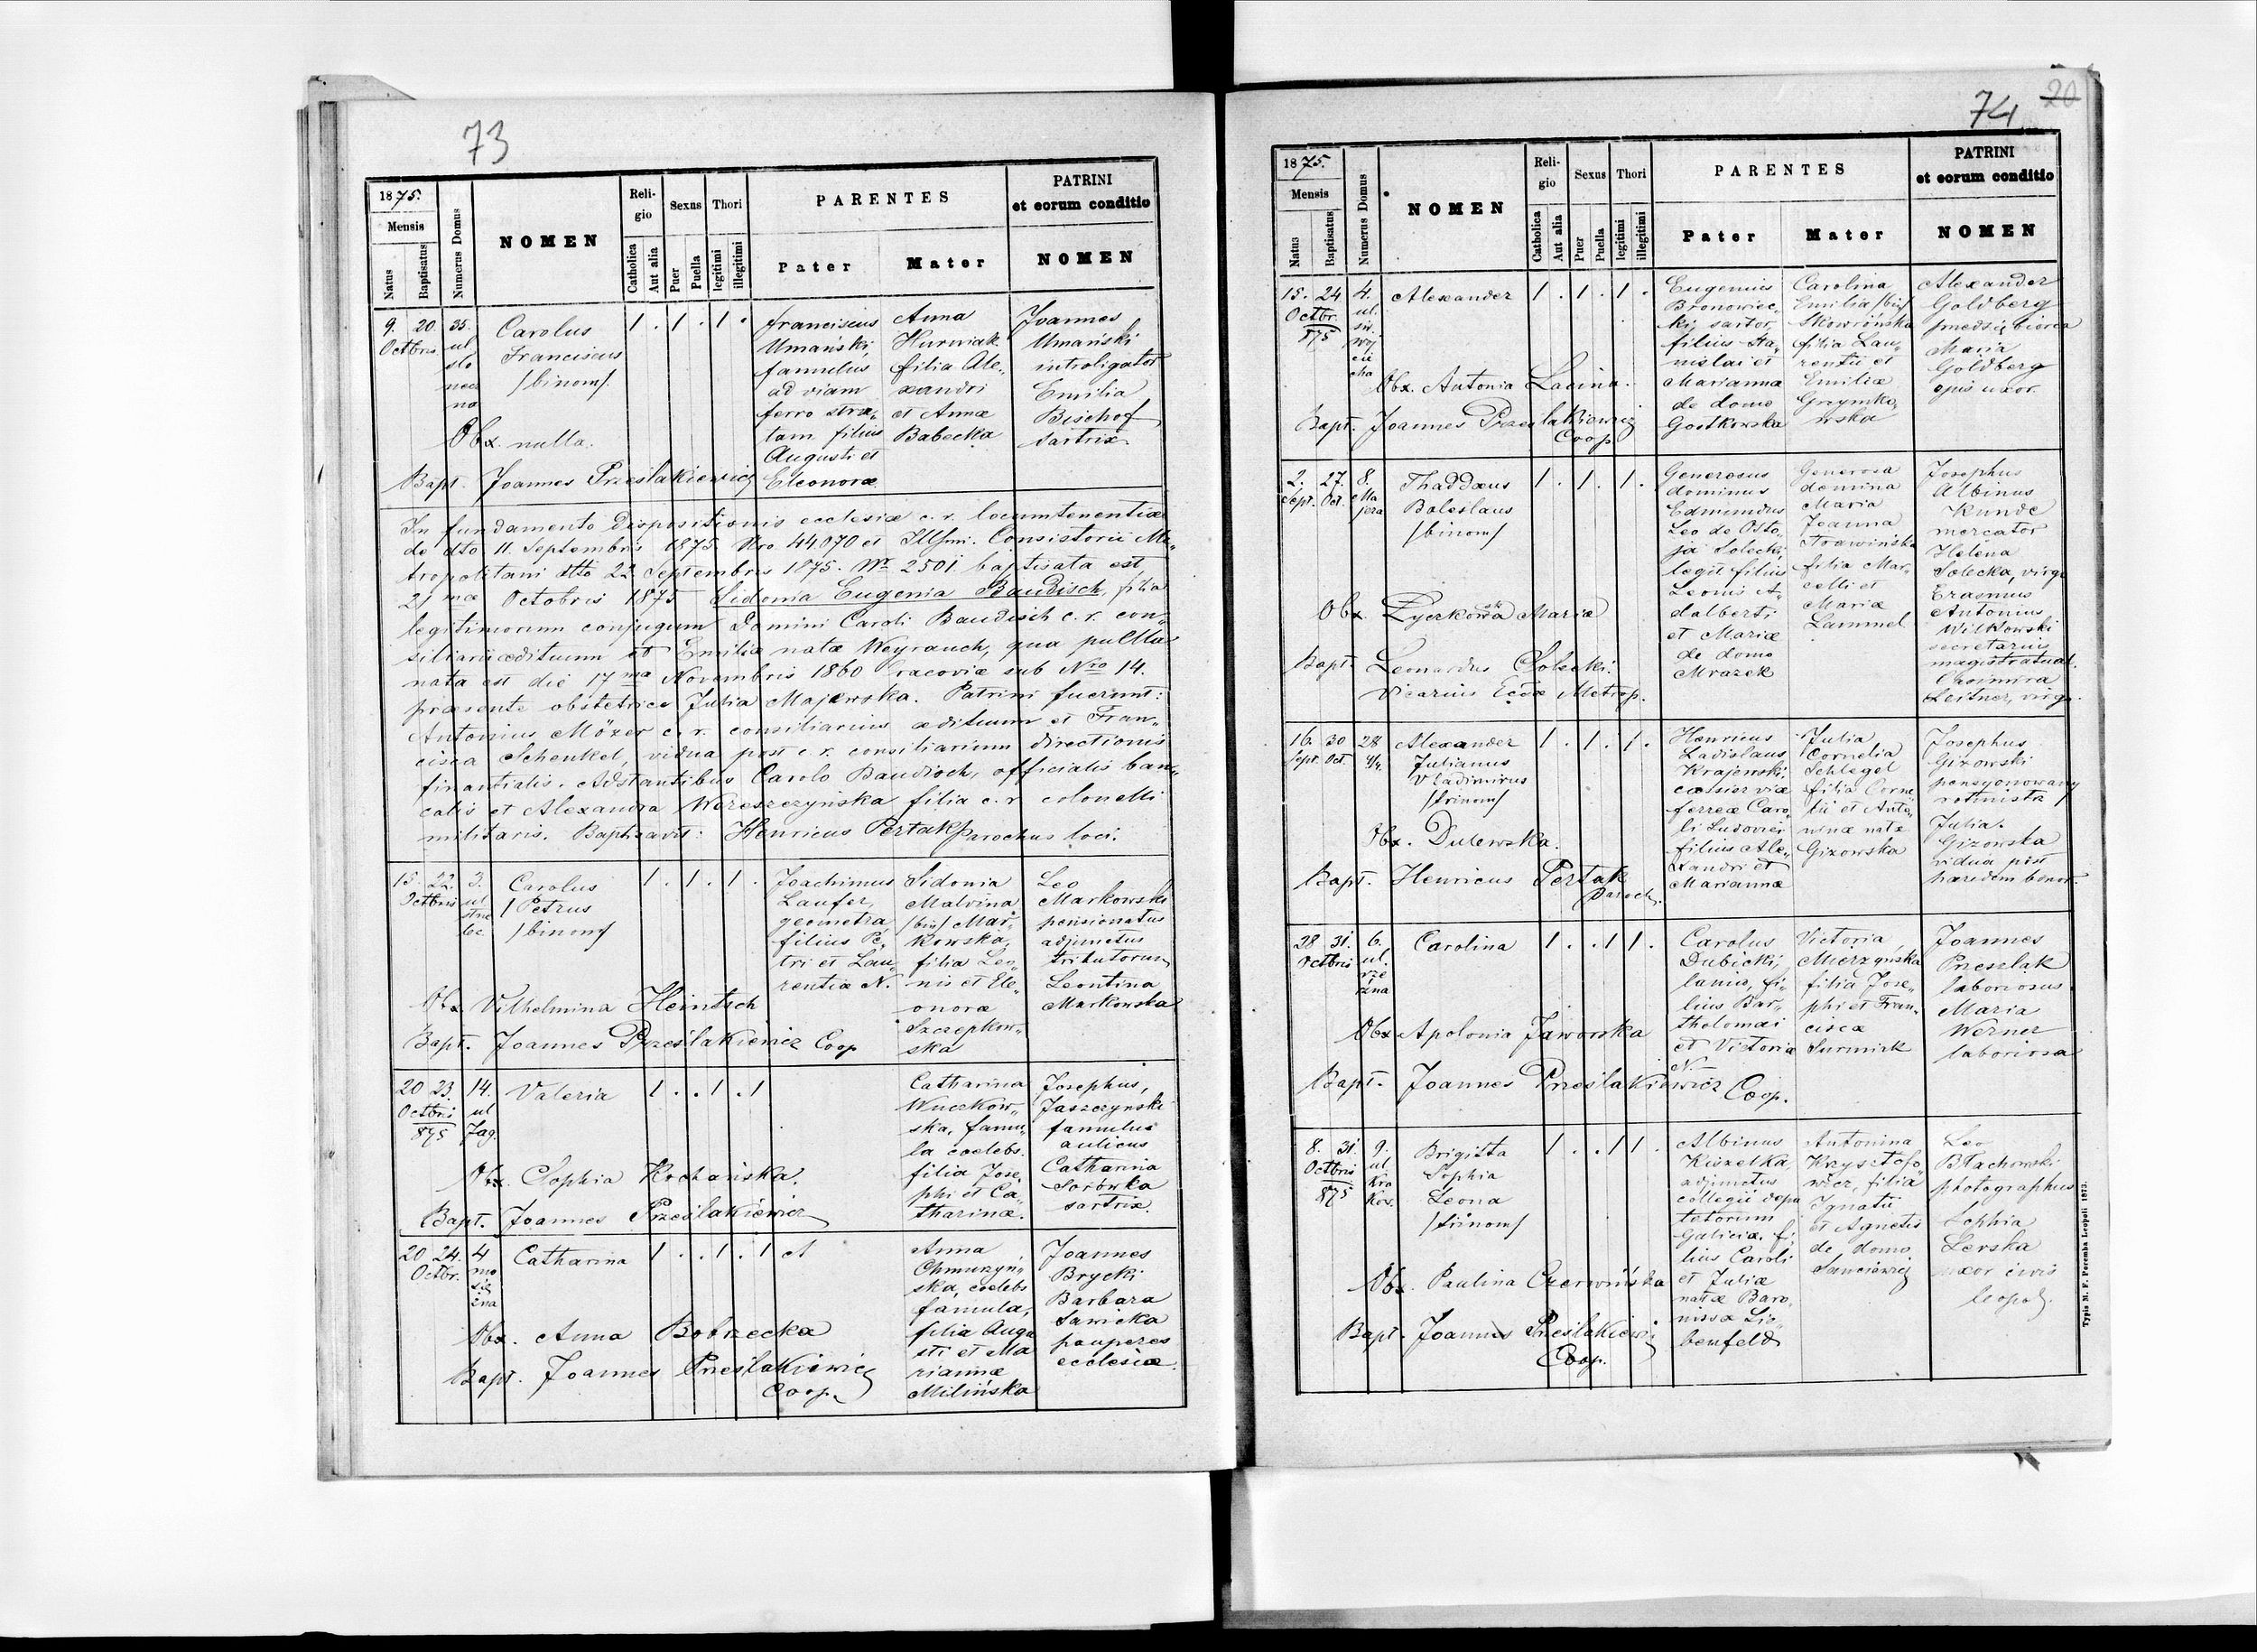 73
1875.
Mensis
Natus
Baptisatus
Numerus Domus
NOMEN
Reli-
gio
Catholica
Aut alia
Sexus
Puer
Puella
Thori
legitimi
illegitimi
PARENTES
Pater
Mater
PATRINI
et eorum conditio
NOMEN
9. 20
Octbris
35.
ul
sło
nec
na
Carolus
Franciscus
/binom/
1 . 1 . 1 .
Obx. nulla.
Bapt. Joannes Prześlakiewicz
franciscus
Umański,
famulus
ad viam
ferro stra„
tam filius
Augusti et
Eleonoræ
Anna
Hurniak
filia Ale„
xandri
et Annæ
Babecka
Joannes
Umański
introligator
Emilia
Bischof
sartrix
In fundamento Dispositionis ecclesiæ c. r. locumtenentiæ
de dto 11. Septembris 1875. Nro 44070 et Illsmi. Consistorii Me„
tropolitani dtto 22. Septembris 1875. Nr 2501 baptisata est,
21 mæ Octobris 1875 Sidonia Eugenia Baudisch, filia
legitimorum conjugum Domini Caroli Baudisch c. r. con„
siliarii ædituum et Emiliæ natæ Weyrauch, qua puella
nata est die 17 ma Novembris 1860 Cracoviæ sub Nro 14.
præsente obstetrice Julia Majewska. Patrini fuerunt:
Antonius Mözer c. r. consiliarius ædituum et Fran„
cisca Schenkel, vidua post c. r. consiliarium directionis
finantialis. Adstantibus Carolo Baudisch, officialis ban„
calis et Alexandra Wereszczyńska filia c. r colonelli
militaris. Baptisavit: Henricus Pertak Parochus loci.
15. 22.
Octbris
3.
ul
strze
lec
Carolus
/ Petrus
/binom/
1 . 1 . 1 .
Obx Vilhelmina Heintsch
Bapt. Joannes Prześlakiewicz Coop
Joachimus
Laufer,
geometra,
filius Pe„
tri et Lau„
rentiæ N.
Sidonia
Malvina
/bin/ Mar„
kowska,
filia Leo„
nis et Ele„
onoræ
Szczepkow„
ska
Leo
Markowski
pensionatus
adjunctus
tributorum
Leontina
Markowska
20 23.
Octbris
875
14.
ul
Jag.
Valeria
1 . . 1 . 1
Obx. Sophia Kochańska.
Bapt. Joannes Prześlakiewicz
Catharina
Wuczkow„
ska, famu„
la coelebs.
filia Jose„
phi et Ca„
tharinæ.
Josephus,
Jaszczynski
famulus
aulicus
Catharina
Sorówka
sartrix.
20 24.
Octbr.
4
mo
się
żna
Catharina
1 . . 1 . 1
Obx. Anna Bobrzecka
Bapt. Joannes Prześlakiewicz
Coop.
Anna
Chmurzyn„
ska, coelebs
famula,
filia Augu
sti et Ma
riannæ
Milińska
Joannes
Brycki
Barbara
Sawicka
pauperes
ecclesiæ
74
20
1875.
Mensis
Natus
Baptisatus
Numerus Domus
NOMEN
Reli-
gio
Catholica
Aut alia
Sexus
Puer
Puella
Thori
legitimi
illegitimi
PARENTES
Pater
Mater
PATRINI
et eorum conditio
NOMEN
15. 24
Octbr.
875
4.
ul.
św.
woj
cie
cha
Alexander
1 . 1 . 1 .
Obx. Antonia Lacina.
Bapt. Joannes Prześlakiewicz
Coop
Eugenius
Bronowiec„
ki, sartor,
filius Sta„
nislai et
Mariannæ
de domo
Gostkowska
Carolina
Emilia /bin/
Skowrońska
filia Lau„
rentii et
Emiliæ
Grzymko„
wska
Alexander
Goldberg
przedsiębierca
Maria
Goldberg
ejus uxor.
2. 27.
Sept. Oct.
8.
Ma
jera
Thaddæus
Boleslaus
/binom/
1 . 1 . 1 .
Obx Łyczkowska Maria
Bapt. Leonardus Solecki.
Vicarius Eccæ Metrop.
Generosus
dominus
Edmundus
Leo de Osto„
ja Solecki,
legit filius
Leonis A„
dalberti
et Mariæ
de domo
Mrazek
Generosa
domina
Maria
Joanna
Trawińska
filia Mar„
celli et
Mariæ
Lammel
Josephus
Albinus
Kunde
mercator
Helena
Solecka, virgo
Erasmus
Antonius
Witkowski
secretarius
magistratual.
Casimira
Leitner, virgo.
16. 30
Sept. Oct.
28
4/4.
Alexander
Julianus
Vladimirus
/trinom/
1 . 1 . 1 .
Obx. Dulewska.
Bapt. Henricus Pertak
Paroch.
Henricus
Ladislaus
Krajewski.
cassier viæ
ferreæ Caro„
li Ludovici
filius Ale„
xandri et
Mariannæ
Julia
Cornelia
Schlegel
filia Corne„
lii et Anto„
ninæ natæ
Gizowska
Josephus
Gizowski
pensyonowany
rotmistrz
Julia.
Gizowska
vidua post
hæredem bonor.
28 31.
Octbris
6.
ul.
wrze
śna
Carolina
1 . . 1 1 .
Obx Apolonia Jaworska
Bapt. Joannes Prześlakiewicz Coop.
Carolus
Dubicki,
lanius, fi„
lius Bar„
tholomæi
et Victoriæ
N.
Victoria
Mierzyńska
filia Jose„
phi et Fran„
ciscæ
Surmirk
Joannes
Przeszlak
laboriosus
Maria
Werner
laboriosa
8. 31.
Octbris
875
9.
ul.
Kra
Kow.
Brigitta
Sophia
Leona
/trinom/
1 . . 1 1 .
Obx. Paulina Czerwińska
Bapt. Joannes Prześlakiewicz
Coop.
Albinus
Kiszelka,
adjunctus
collegii depu
tatorum
Galiciæ. fi„
lius Caroli
et Juliæ
natæ Baro„
nissa Lie„
benfeld
Antonina
Krzysztofo„
wicz, filia
Ignatii
et Agnetis
de domo
Leo
Błachowski
photographus
Sophia
Lerska
uxor civis
leopol.
Typis M. F. Poremba Leopoli 1873.